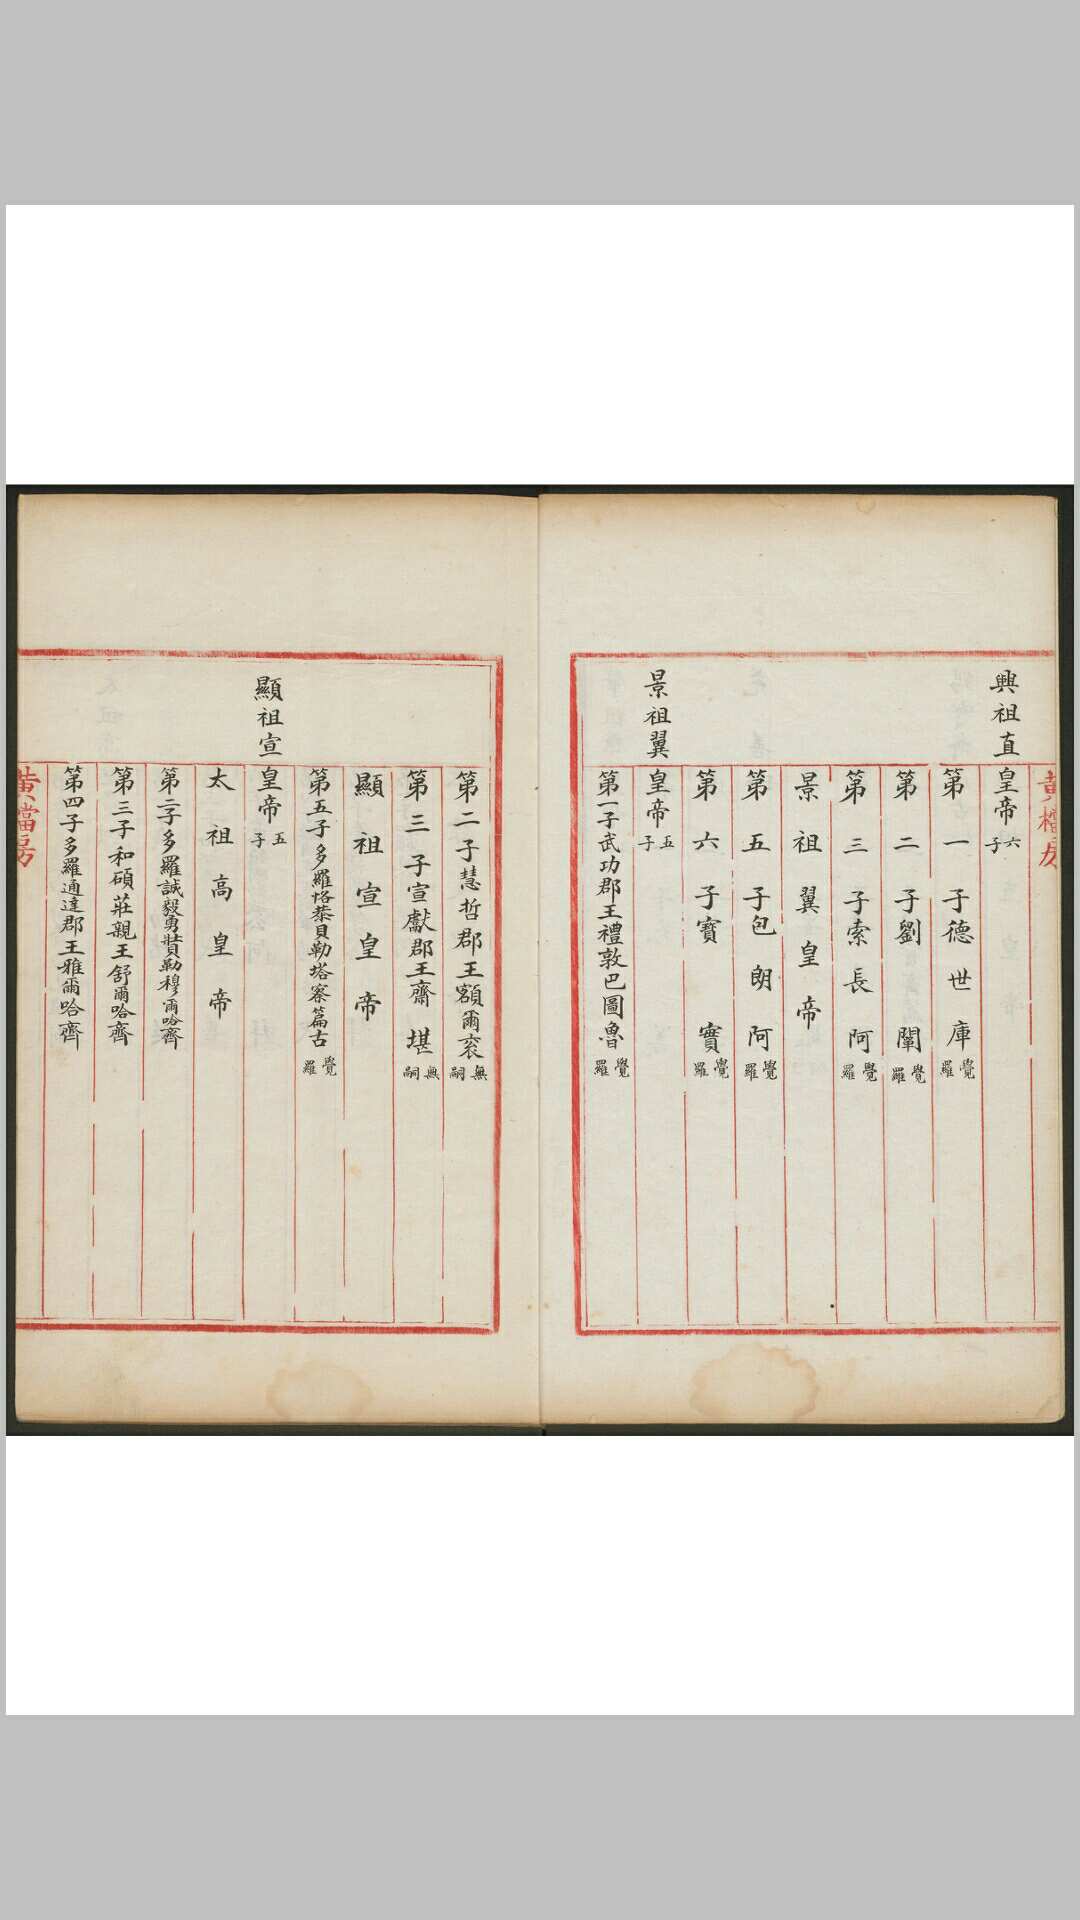 黃檔房
興祖直皇帝六子
第一子德世庫覺羅
第二子劉闡覺羅
第三子索長阿覺羅
景祖翼皇帝
第五子包朗阿覺羅
第六子寶實覺羅
景祖翼皇帝五子
第一子武功郡王禮敦巴圖魯覺羅
第二子慧哲郡王額爾袞無嗣
第三子宣獻郡王齋堪無嗣
顯祖宣皇帝
第五子多羅恪恭貝勒塔察篇古覺羅
顯祖宣皇帝五子
太祖高皇帝
第二子多羅誠毅勇貝勒穆爾哈齊
第三子和碩莊親王舒爾哈齊
第四子多羅通達郡王雅爾哈齊
黃檔房